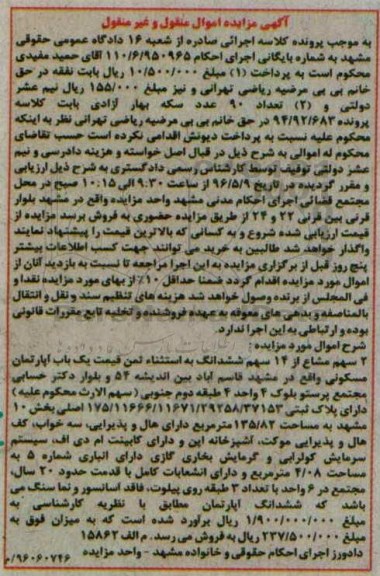 آگهی مزایده اموال منقول و غیر منقول
به موجب پرونده کلاسه اجرائی صادره از شعبه ۱۶ دادگاه عمومی حقوقی
مشهد به شماره بایگانی اجرای احکام ۱۱۰/۶/۹۵۰۹۶۵ آقای حمید مفیدی
محکوم است به پرداخت (۱) مبلغ ۱۰/۵۰۰/۰۰۰ ریال بابت نفقه در حق
خانم بی بی مرضیه ریاضی تهرانی و نیز مبلغ ۱۵۵/۰۰۰ ریال نیم عشر
دولتی و (۲) تعداد ۹۰ عدد سکه بهار آزادی بابت کلاسه
پرونده ۹۴/۹۲/۶۸۳ در حق خانم بی بی مرضیه ریاضی تهرانی نظر به اینکه
محکوم علیه نسبت به پرداخت دیونش اقدامی نکرده است حسب تقاضای
محکوم له اموالی به شرح ذیل در قبال اصل خواسته و هزینه دادرسی و نیم
عشر دولتی توقیف توسط کارشناس رسمی دادگستری به شرح ذیل ارزیابی
و مقرر گردیده در تاریخ ۹۶/۵/۹ از ساعت ۹.۳۰ الی ۱۰:۱۵ صبح در محل
مجتمع قضائی اجرای احکام مدنی مشهد واحد مزایده واقع در مشهد بلوار
قرنی بین قرنی ۲۲ و ۲۴ از طریق مزایده حضوری به فروش برسد مزایده از
قیمت ارزیابی شده شروع و به کسانی که بالاترین قیمت را پیشنهاد نمایند
واگذار خواهد شد طالبین به خرید می توانند جهت کسب اطلاعات بیشتر
پنج روز قبل از برگزاری مزایده به این اجرا مراجعه تا نسبت به بازدید آنان از
اموال مورد مزایده اقدام گردد ضمنا حداقل ۱۰٪ از بهای مورد مزایده نقدا و
فی المجلس از برنده وصول خواهد شد هزینه های تنظیم سند و نقل و انتقال
بالمناصفه و بدهی های معوقه به عهده فروشنده و تخلیه تابع مقررات قانونی
بوده و ارتباطی به این اجرا ندارد.
شرح اموال مورد مزایده:
۲ سهم مشاع از ۱۴ سهم ششدانگ به استثناء ثمن قیمت یک باب آپارتمان
مسکونی واقع در مشهد قاسم آباد بین اندیشه ۵۴ و بلوار دکتر حسابی
مجتمع پرستو بلوک ۴ واحد ۴ طبقه دوم جنوبی (سهم الارث محکوم علیه)
دارای پلاک ثبتی ۱۷۵/۱۱۶۶۶/۱۱۶۷۱/۲۹۲۵۸/۳۷۱۵۳ اصلی بخش ۱۰
مشهد به مساحت ۱۳۵/۸۲ مترمربع دارای هال و پذیرایی، سه خواب، کف
هال و پذیرایی موکت، آشپزخانه اپن و دارای کابینت ام دی اف، سیستم
سرمایش کولرآبی و گرمایش بخاری گازی دارای انباری شماره ۵ به
مساحت ۴/۰۸ مترمربع و دارای انشعابات کامل با قدمت حدود ۲۰ سال،
مجتمع در ۶ واحد با تعداد ۳ طبقه روی پیلوت، فاقد آسانسور و نما سنگ می
باشد که ششدانگ آپارتمان مطابق با نظریه کارشناسی به
مبلغ ۱/۹۰۰/۰۰۰/۰۰۰ ریال برآورد شده است که به میزان فوق به
مبلغ ۲۳۷/۵۰۰/۰۰۰ ریال به فروش می رسد. م الف ۱۵۸۶۲
دادورز اجرای احکام حقوقی و خانواده مشهد - واحد مزایده ۹۶۰۶۰۷۴۶/م